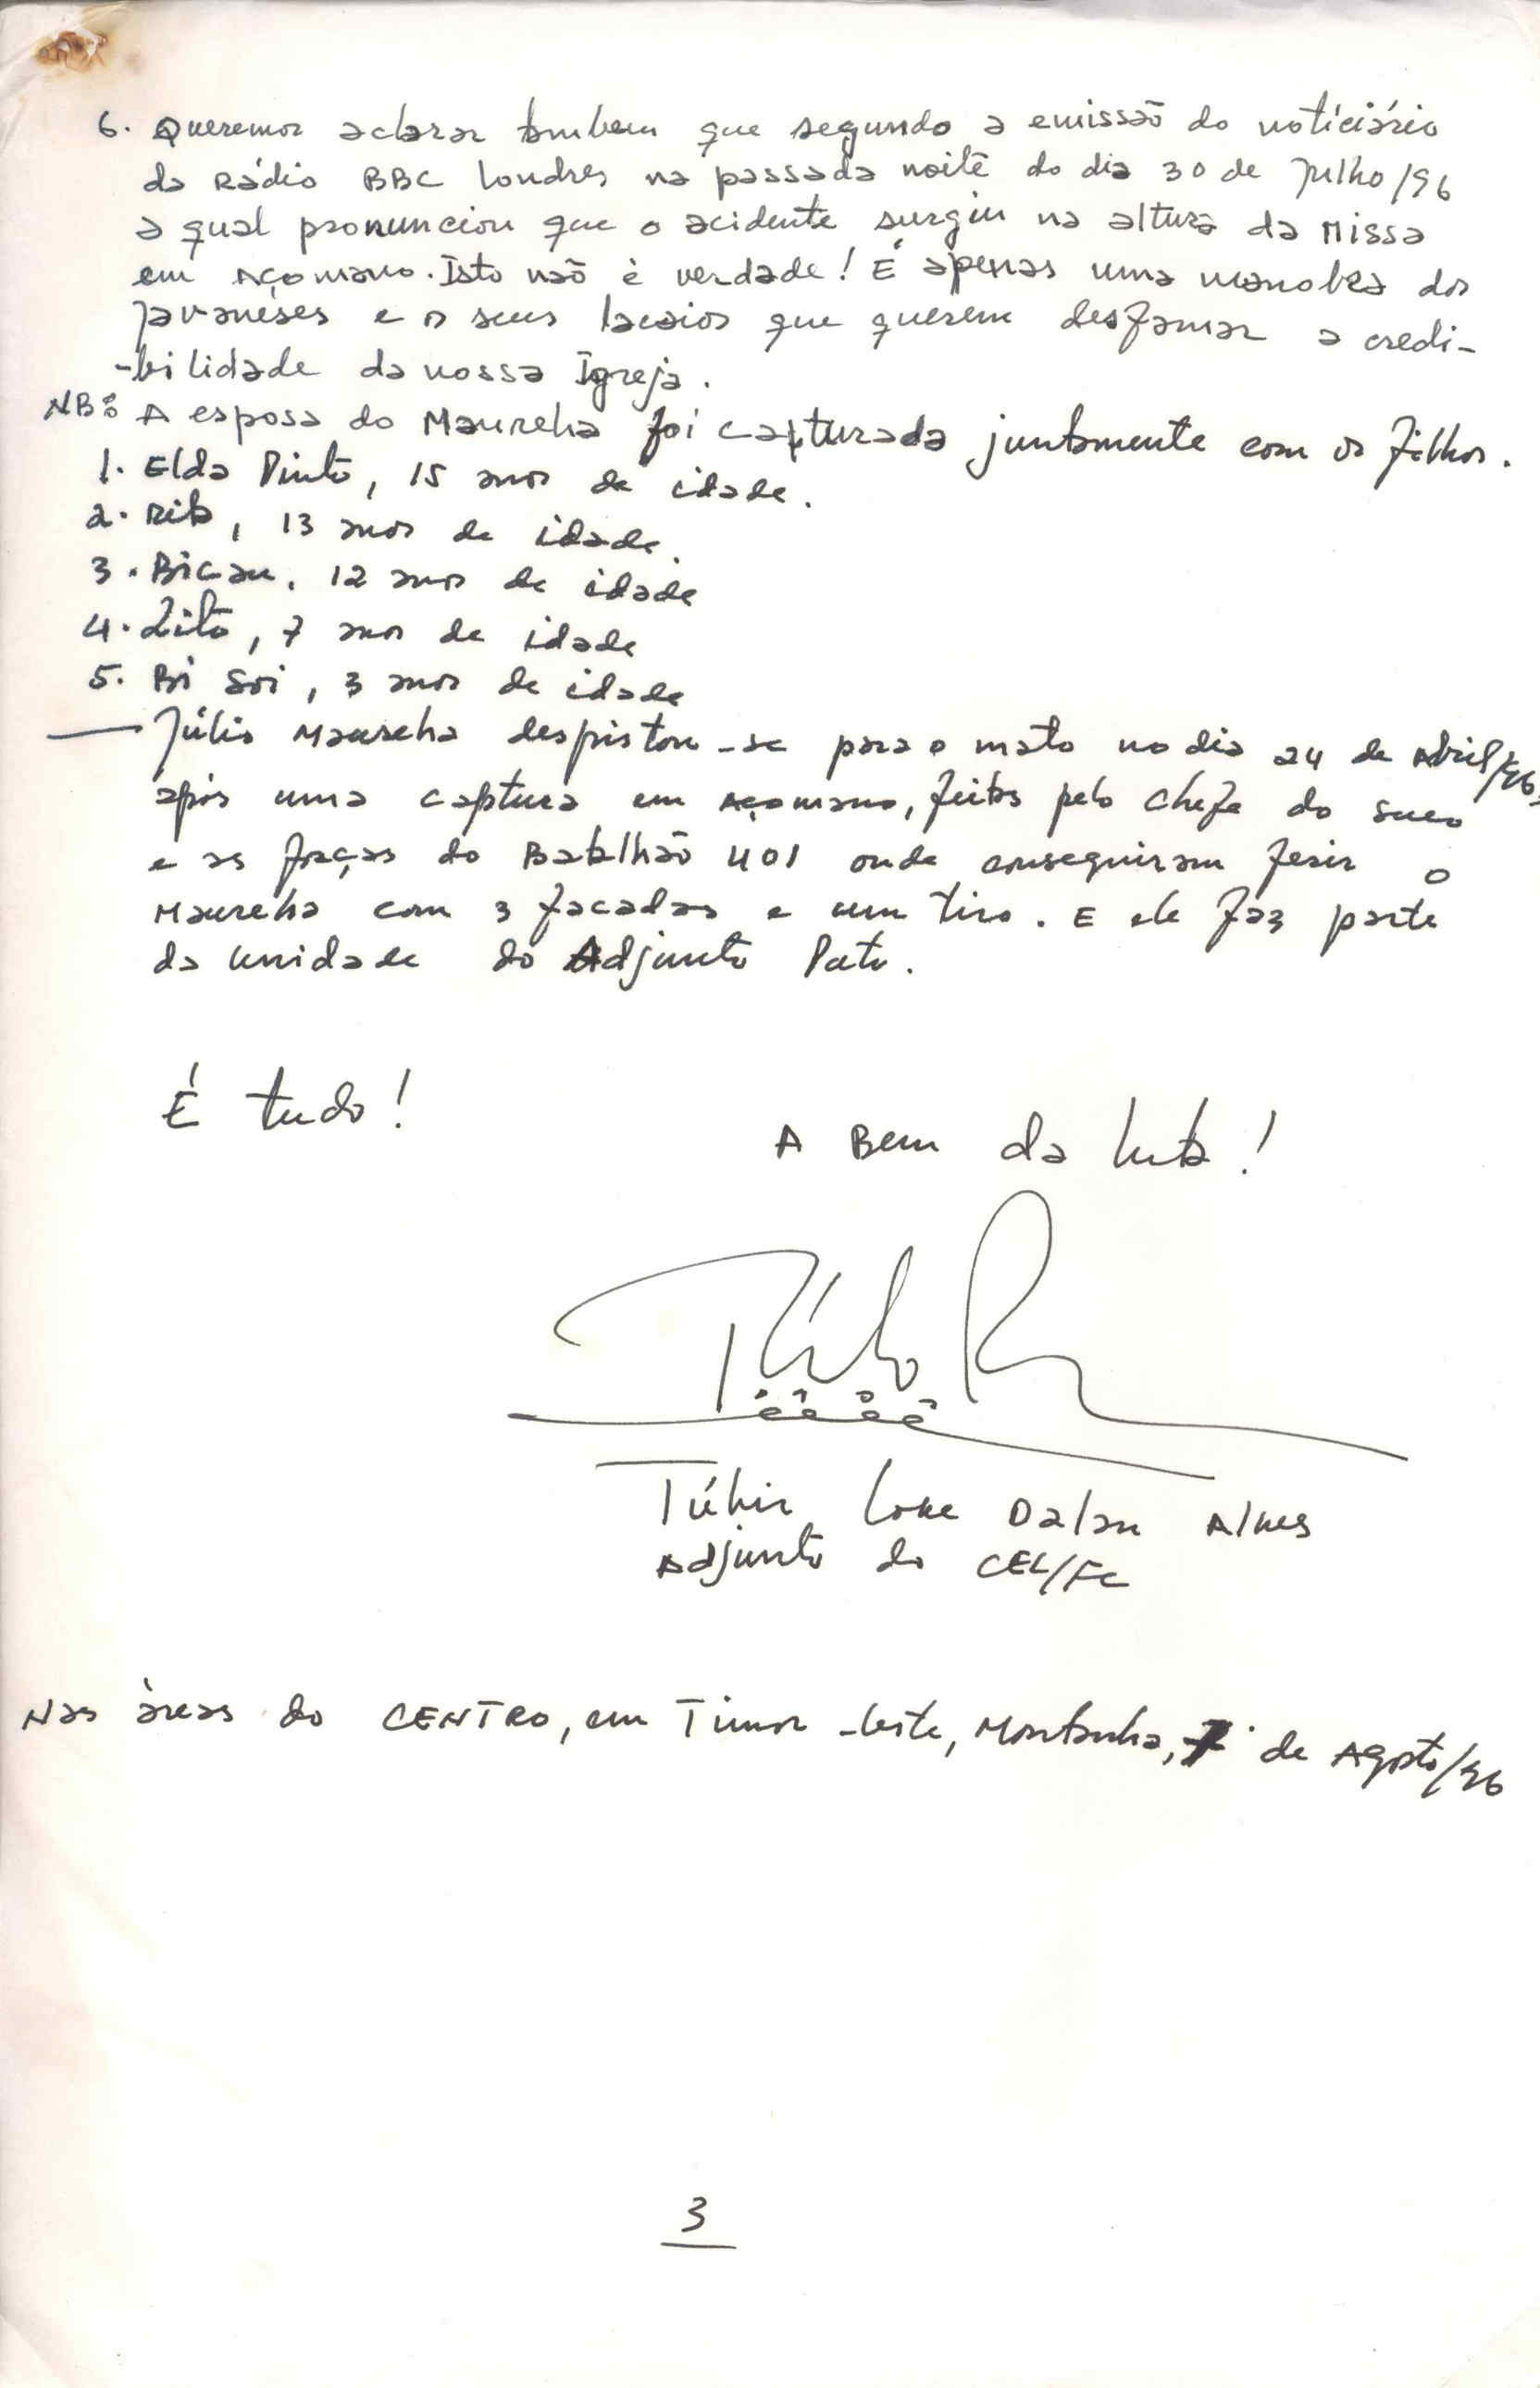 6. Queremos aclarar tambem que segundo a emissão do notíciário
da Rádio BBC Londres na passada noite do dia 30 de Julho/96
a qual pronunciou que o acidente surgiu na altura da Missa
em Açomano. Isto não é verdade! É apenas uma manobra dos
javanêses e os seus lacaios que querem desfamar a credi-
-bilidade da nossa Igreja.
NB: A esposa do Maureha foi capturada juntamente com os filhos.
1. Elda Pinto, 15 anos de idade.
2. Rita, 13 anos de idade.
3. Bicau, 12 anos de idade
4. Zito, 7 anos de idade
5. Bi Soi, 3 anos de idade
— Júlio Maureha despistou-se para o mato no dia 24 de Abril/96,
após uma captura em Açomano, feitas pelo chefe do suco
e as forças do Batalhão 401 onde conseguiram ferir o
Maureha com 3 facadas e um tiro. E ele faz parte
da unidade do Adjunto
É tudo!
A Bem da luta!
Lone Dalan Alves
Adjunto do CEL/FC
Nas áreas do CENTRO, em Timor-Leste, Montanha, 7 de Agosto/96
3